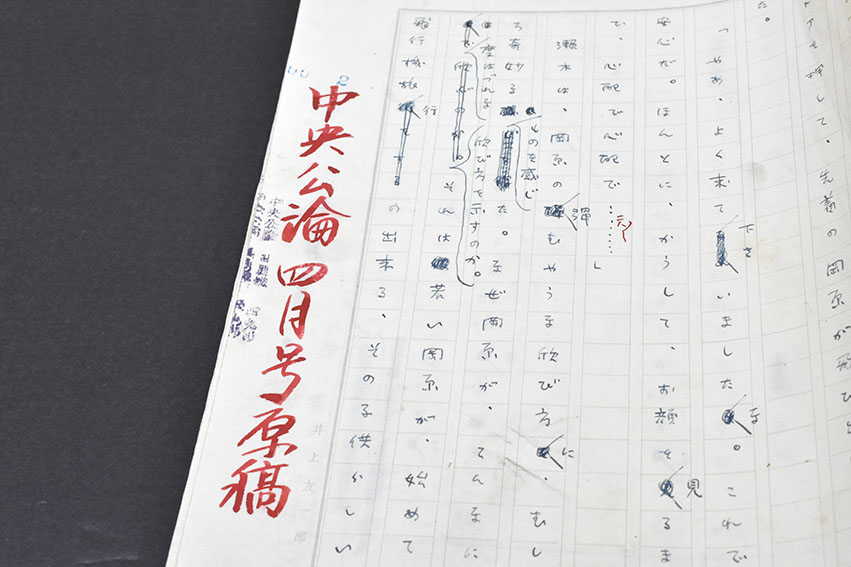 を押して、先着の岡原が飛び出
た。
「やあ、よく来て下さいましたな。これで
安心だ。ほんとに、かうして、お顔を見るま
で、心配で心配で………」
瀬木は、岡原の弾むやうな欣び方に、むし
ろ奇妙なものを感じた。なぜ岡原が、こんなに
度はづれな欣び方を示すのか。
それは若い岡原が、始めて
飛行機旅行の出来る、その子供らしい
井上友一郎
2
中央公論四月号原稿
中央公論